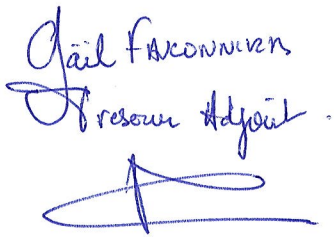 Gaïl FAUCONNIER
Tresorier Adjoint.